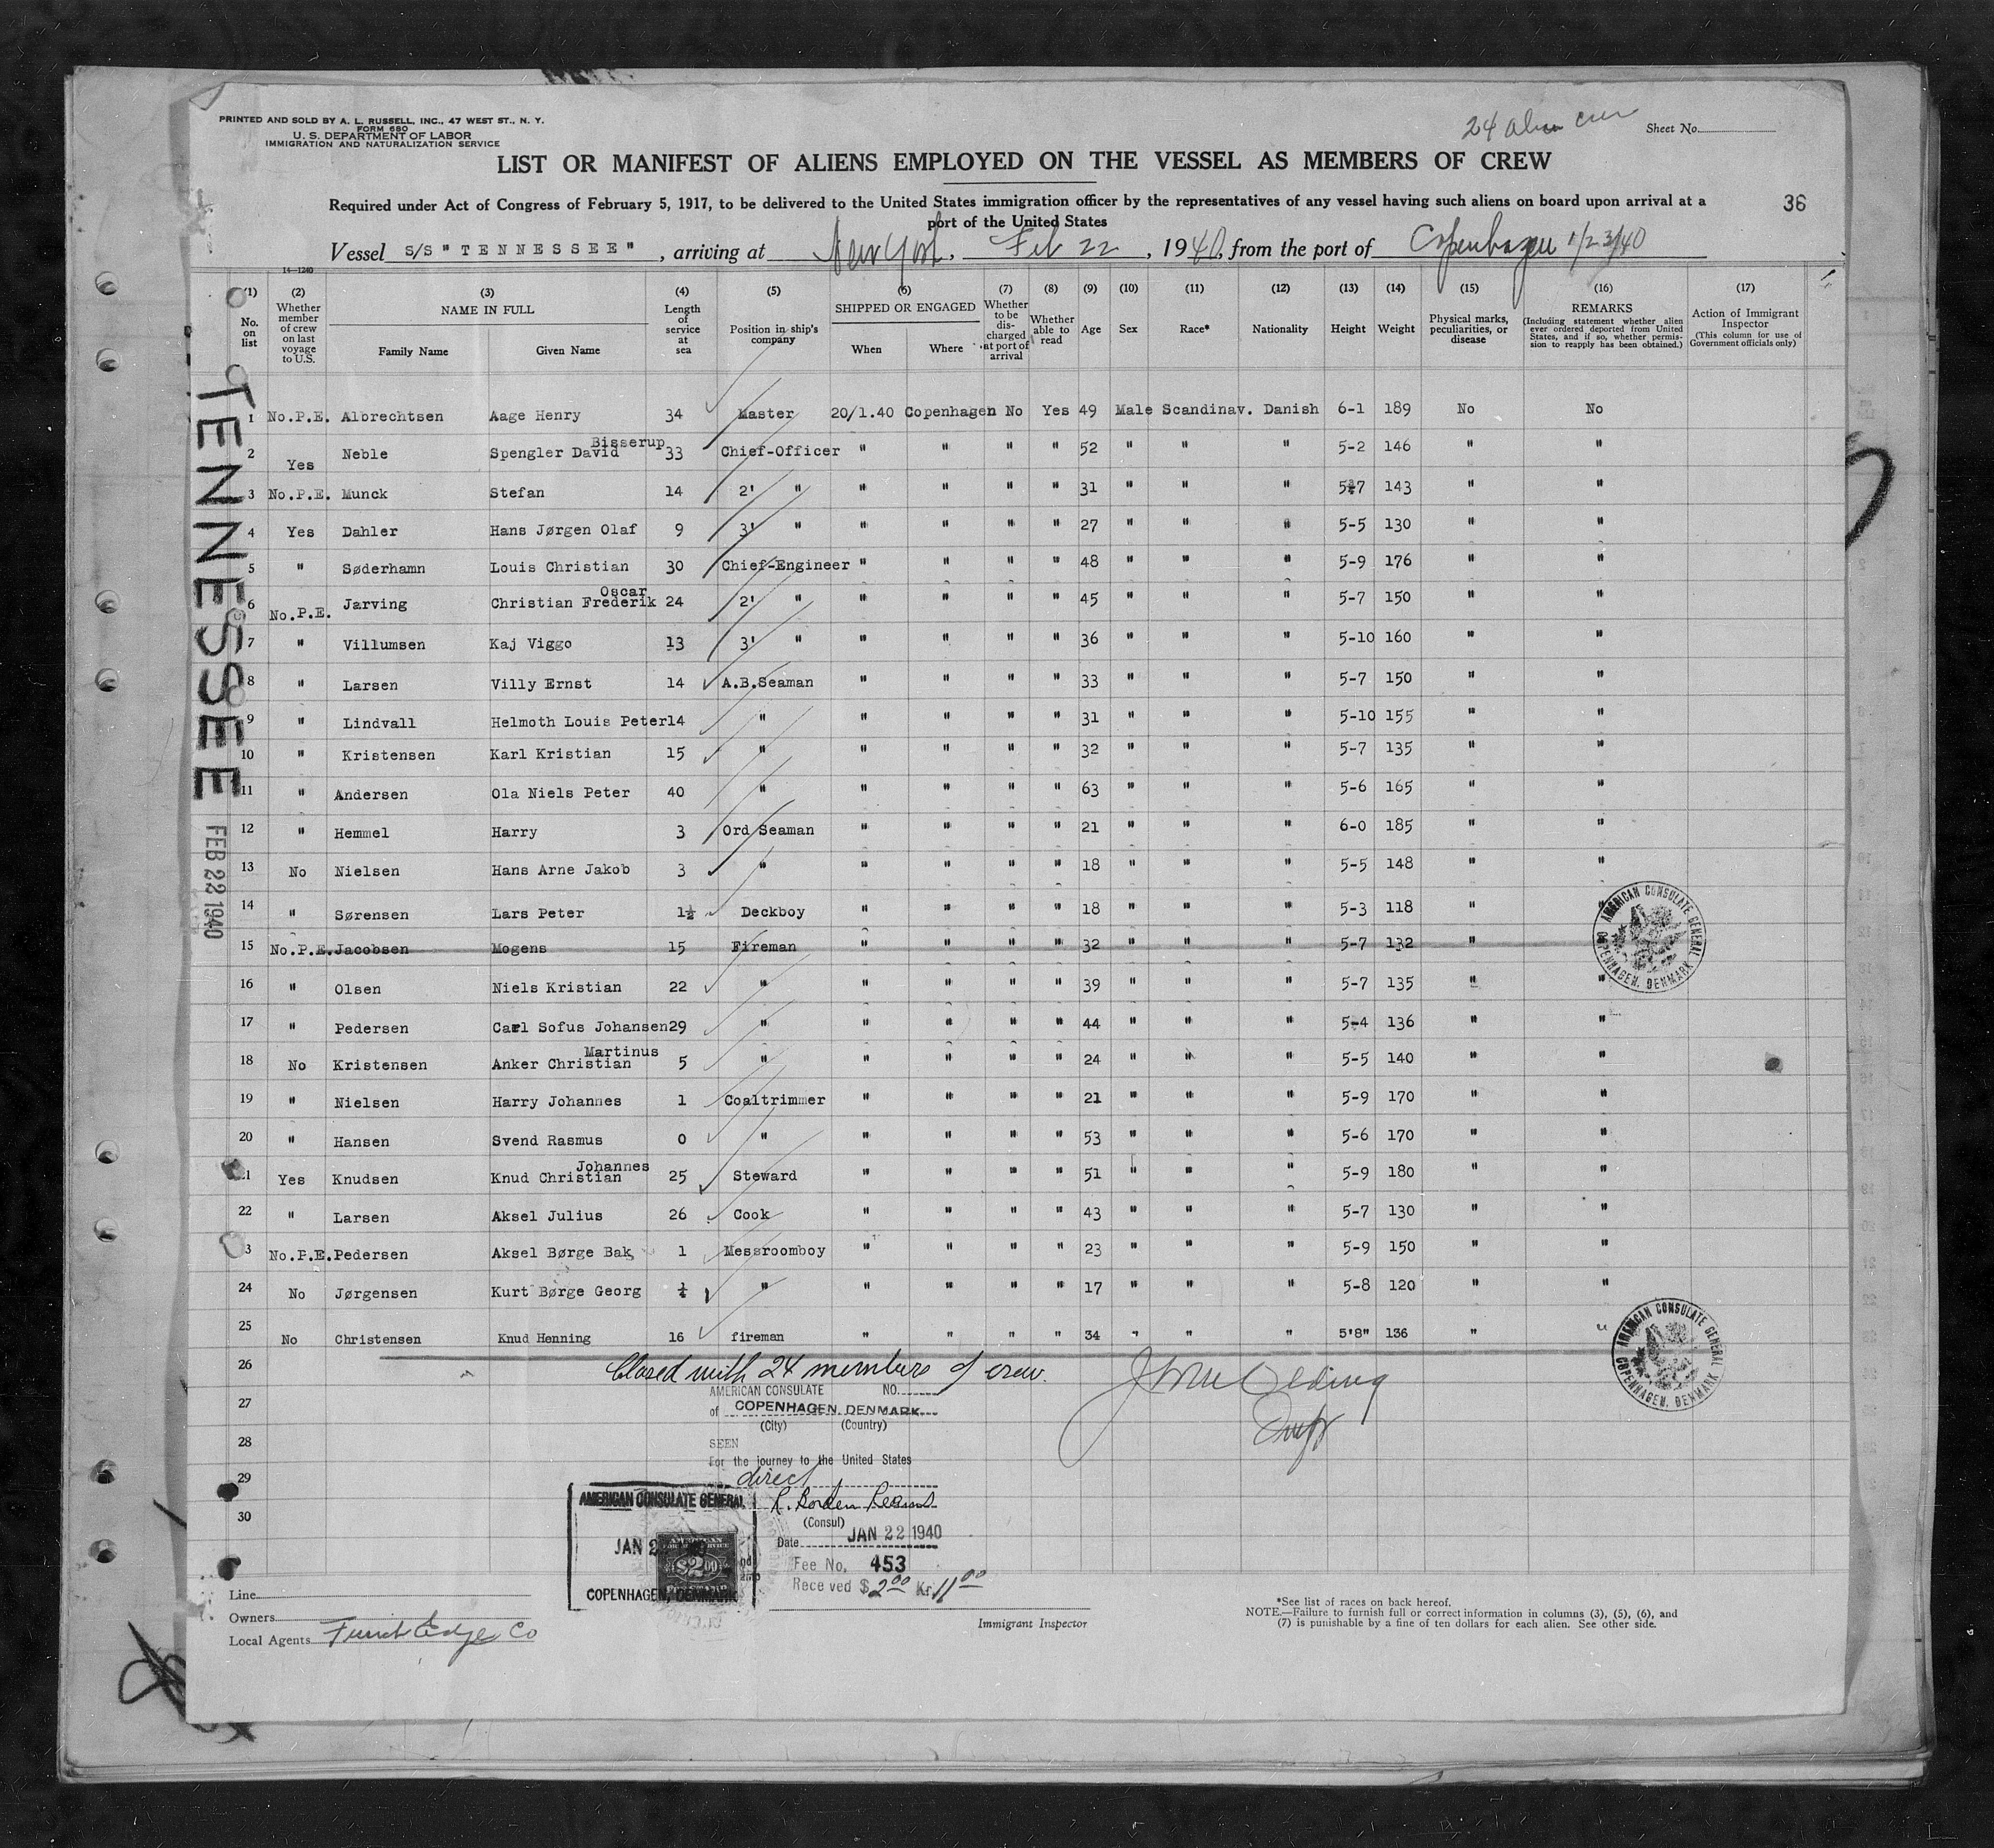 PRINTED AND SOLD BY A. L. RUSSELL, INC., 47 WEST ST., N. Y.
FORM 680
U. S. DEPARTMENT OF LABOR
IMMIGRATION AND NATURALIZATION SERVICE
24 alien crew
Sheet No.
LIST OR MANIFEST OF ALIENS EMPLOYED ON THE VESSEL AS MEMBERS OF CREW
Required under Act of Congress of February 5, 1917, to be delivered to the United States immigration officer by the representatives of any vessel having such aliens on board upon arrival at a
port of the United States
36
Vessel S/S "TENNESSEE", arriving at New York, Feb 22, 1940, from the port of Copenhagen 1/23/40
14-1240
(1) No. on list (2) Whether member of crew on last voyage to U.S. (3) NAME IN FULL Family Name Given Name (4) Length of service at sea (5) Position in ship's company (6) SHIPPED OR ENGAGED When Where (7) Whether to be discharged at port of arrival (8) Whether able to read (9) Age (10) Sex (11) Race* (12) Nationality (13) Height (14) Weight (15) Physical marks, peculiarities, or disease (16) REMARKS (Including statement whether alien ever ordered deported from United States, and if so, whether permission to reapply has been obtained.) (17) Action of Immigrant Inspector (This column for use of Government officials only)
TENNESSEE
FEB 22 1940
1 No.P.E. Albrechtsen Aage Henry 34 Master 20/1.40 Copenhagen No Yes 49 Male Scandinav. Danish 6-1 189 No No
2 Yes Neble Spengler David Bisserup 33 Chief-Officer " " " " 52 " " " 5-2 146 " "
3 No.P.E. Munck Stefan 14 2' " " " " " 31 " " " 5-7 143 " "
4 Yes Dahler Hans Jørgen Olaf 9 3' " " " " " 27 " " " 5-5 130 " "
5 " Søderhamn Louis Christian 30 Chief-Engineer " " " " 48 " " " 5-9 176 " "
6 No.P.E. Jarving Christian Frederik Oscar 24 2' " " " " " 45 " " " 5-7 150 " "
7 " Villumsen Kaj Viggo 13 3' " " " " " 36 " " " 5-10 160 " "
8 " Larsen Villy Ernst 14 A.B.Seaman " " " " 33 " " " 5-7 150 " "
9 " Lindvall Helmoth Louis Peter 14 " " " " " 31 " " " 5-10 155 " "
10 " Kristensen Karl Kristian 15 " " " " " 32 " " " 5-7 135 " "
11 " Andersen Ola Niels Peter 40 " " " " " 63 " " " 5-6 165 " "
12 " Hemmel Harry 3 Ord Seaman " " " " 21 " " " 6-0 185 " "
13 No Nielsen Hans Arne Jakob 3 " " " " " 18 " " " 5-5 148 " "
14 " Sørensen Lars Peter 1½ Deckboy " " " " 18 " " " 5-3 118 " "
15 No.P.E. Jacobsen Mogens 15 Fireman " " " " 32 " " " 5-7 132 "
16 " Olsen Niels Kristian 22 " " " " " 39 " " " 5-7 135 " "
17 " Pedersen Carl Sofus Johansen 29 " " " " " 44 " " " 5-4 136 " "
18 No Kristensen Anker Christian Martinus 5 " " " " " 24 " " " 5-5 140 " "
19 " Nielsen Harry Johannes 1 Coaltrimmer " " " " 21 " " " 5-9 170 " "
20 " Hansen Svend Rasmus 0 " " " " " 53 " " " 5-6 170 " "
21 Yes Knudsen Knud Christian Johannes 25 Steward " " " " 51 " " " 5-9 180 " "
22 " Larsen Aksel Julius 26 Cook " " " " 43 " " " 5-7 130 " "
3 No.P.E. Pedersen Aksel Børge Bak 1 Messroomboy " " " " 23 " " " 5-9 150 " "
24 No Jørgensen Kurt Børge Georg " " " " " 17 " " " 5-8 120 " "
25 No Christensen Knud Henning 16 fireman " " " " 34 " " " 5'8" 136 " "
26
27
28
29
30
AMERICAN CONSULATE GENERAL
COPENHAGEN, DENMARK
AMERICAN CONSULATE GENERAL
COPENHAGEN, DENMARK
Closed with 24 members of crew.
AMERICAN CONSULATE NO.
of COPENHAGEN, DENMARK
(City) (Country)
SEEN
For the journey to the United States
direct
R. Borden Reams
(Consul)
Date JAN 22 1940
Fee No. 453
Received $ 2.00 Kr 11.00
AMERICAN CONSULATE GENERAL
JAN 2
$2.00
COPENHAGEN, DENMARK
Line
Owners
Local Agents Funch Edge Co
Immigrant Inspector
*See list of races on back hereof.
NOTE.—Failure to furnish full or correct information in columns (3), (5), (6), and
(7) is punishable by a fine of ten dollars for each alien. See other side.